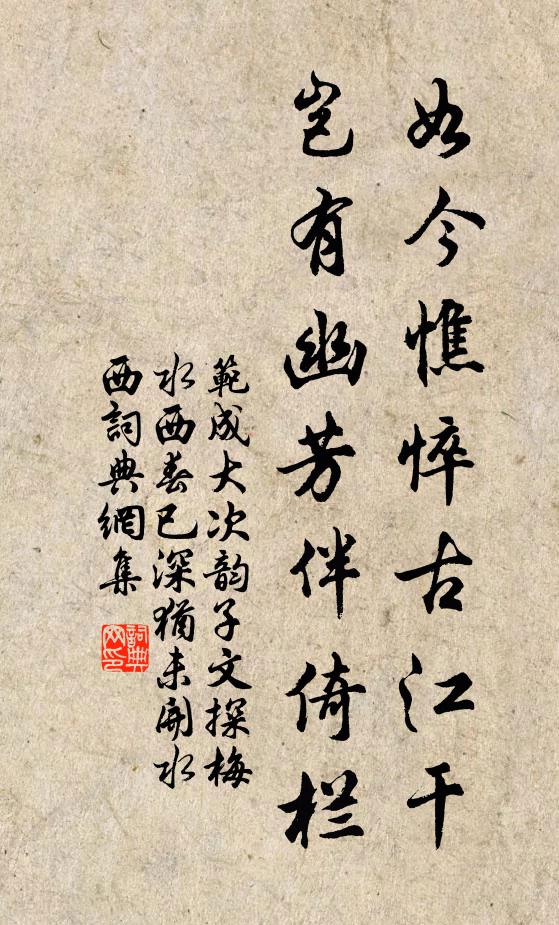 如今憔悴古江干
岂有幽芳伴倚栏
範成大次韵子文探梅
水西春已深猶未開水
西詞典網集
詞典网印